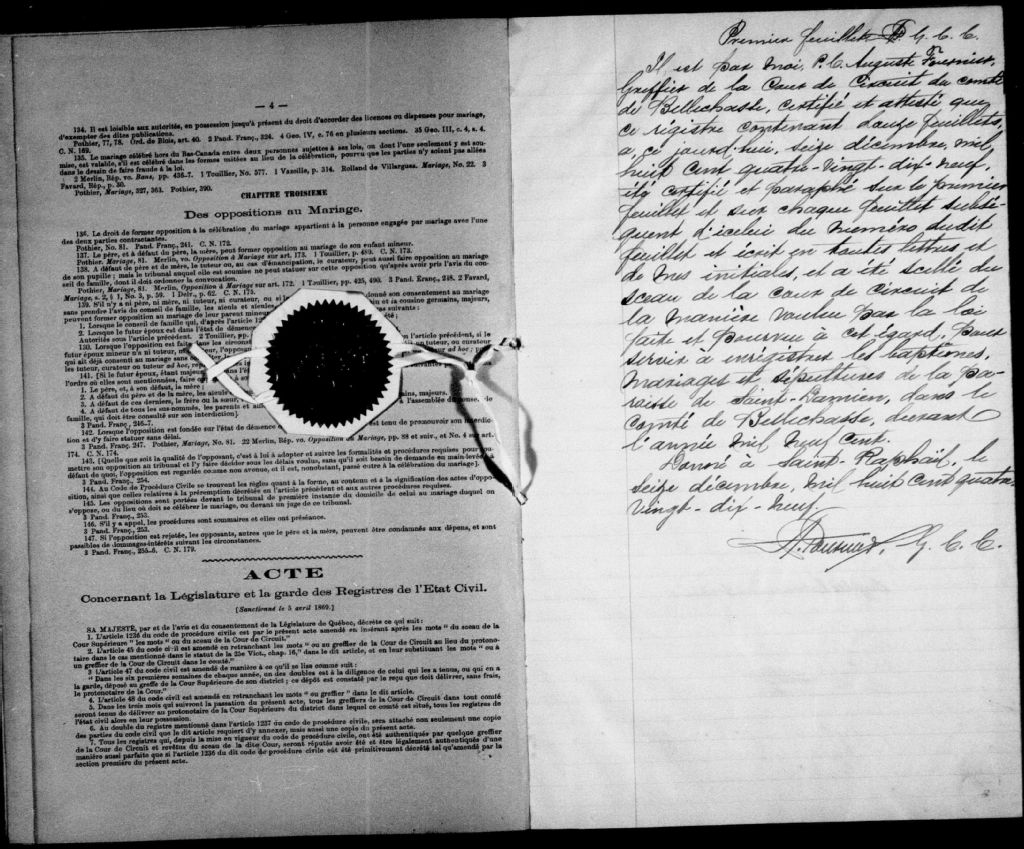 — 4 —
134. Il est loisible aux autorités, en possession jusqu'à présent du droit d'accorder des licences ou dispenses pour mariage,
d'exempter des dites publications.
Pothier, 77, 78. Ord. de Blois, art. 40. 3 Pand. Franç., 324. 4 Geo. IV, c. 76 en plusieurs sections. 35 Geo. III, c. 4, s. 4.
C. N. 169.
135. Le mariage célébré hors du Bas-Canada entre deux personnes sujettes à ses lois, ou dont l'une seulement y est sou-
mise, est valable, s'il est célébré dans les formes usitées au lieu de la célébration, pourvu que les parties n'y soient pas allées
dans le dessin de faire fraude à la loi.
2 Merlin, Rép. vo. Bans, pp. 436-7. 1 Touillier, No. 577. 1 Vazille, p. 314. Rolland de Villargues. Mariage, No. 22. 3
Favard, Rép., p. 30.
Pothier, Mariage, 327, 361. Pothier, 390.
CHAPITRE TROISIEME
Des oppositions au Mariage.
136. Le droit de former opposition à la célébration du mariage appartient à la personne engagée par mariage avec l'une
des deux parties contractantes.
Pothier, No. 81. Pand. Franç., 241. C. N. 172.
137. Le père, et à défaut du père, la mère, peut former opposition au mariage de son enfant mineur.
Pothier, Mariage, 81. Merlin, vo. Opposition à Mariage sur art. 173. 1 Touillier, p. 489. C. N. 173.
138. A défaut de père et de mère, le tuteur ou, au cas d'émancipation, le curateur, peut aussi faire opposition au mariage
de son pupille; mais le tribunal auquel elle est soumise ne peut statuer sur cette opposition qu'après avoir pris l'avis du con-
seil de famille, dont il doit ordonner la convocation.
Pothier, Mariage, 81. Merlin, Opposition à Mariage sur art. 172. 1 Touillier, pp. 425, 490. 3 Pand. Franç., 248. 2 Favard,
Mariage, s. 2, § 1, No. 3, p. 59. 1 Delv., p. 62. C. N. 175.
139. S'il n'y a ni père, ni mère, ni tuteur, ni curateur, ou si le donné son consentement au mariage
sans prendre l'avis du conseil de famille, les aïeuls et aïeules et la cousine germains, majeurs,
peuvent former opposition au mariage de leur parent mineur suivants:
1. Lorsque le conseil de famille qui, d'après l'article
2. Lorsque le futur époux est dans l'état de démence
Autorités sous l'article précédent. 2 Touillier, l'article précédent, si le
futur époux mineur n'a ni tuteur,
qui ait déjà consenti au mariage sans
les tuteur, curateur ou tuteur ad hoc,
141. [Si le futur époux, étant majeur,
l'ordre où elles sont mentionnées, faire
1. Le père, et, à son défaut, la mère;
2. A défaut du père et de la mère, les aïeuls
3. A défaut de ces derniers, le frère ou la sœur,
4. A défaut de tous les sus-nommés, les parents et
famille, qui doit être consulté sur son interdiction]
3 Pand. Franç., 246-7.
142. Lorsque l'opposition est fondée sur l'état de démence est tenu de promouvoir son interdic-
tion et d'y faire statuer sans délai.
3 Pand. Franç. 247. Pothier, Mariage, No. 81. 22 Merlin, Rép. vo. Opposition au Mariage, pp. 88 et suiv., et No. 4 sur art.
174. C. N. 174.
143. [Quelle que soit la qualité de l'opposant, c'est à lui à adopter et suivre les formalités et procédures requises pour sou-
mettre son opposition au tribunal et l'y faire décider sous les délais voulus, sans qu'il soit besoin de demande en main levée; à
défaut de quoi, l'opposition est regardée comme non avenue, et il est, nonobstant, passé outre à la célébration du mariage].
3 Pand. Franç., 254.
144. Au Code de Procédure Civile se trouvent les règles quant à la forme, au contenu et à la signification des actes d'oppo-
sition, ainsi que celles relatives à la préremption décrétée en l'article précédent et aux autres procédures requises.
145. Les oppositions sont portées devant le tribunal de première instance du domicile de celui au mariage duquel on
s'oppose, ou du lieu où doit se célébrer le mariage, ou devant un juge de ce tribunal.
3 Pand. Franç., 253.
146. S'il y a appel, les procédures sont sommaires et elles ont préséance.
3 Pand. Franç., 253.
147. Si l'opposition est rejetée, les opposants, autres que le père et la mère, peuvent être condamnés aux dépens, et sont
passibles de dommages-intérêts suivant les circonstances.
3 Pand. Franç., 255-6. C. N. 179.
ACTE
Concernant la Législature et la garde des Registres de l'Etat Civil.
[Sanctionné le 5 avril 1869.]
SA MAJESTÉ, par et de l'avis et du consentement de la Législature de Québec, décrète ce qui suit:
1. L'article 1236 du code de procédure civile est par le présent acte amendé en insérant après les mots " du sceau de la
Cour Supérieure " les mots " ou du sceau de la Cour de Circuit."
2. L'article 45 du code civil est amendé en retranchant les mots " ou au greffier de la Cour de Circuit au lieu du protono-
taire dans le cas mentionné dans le statut de la 25e Vict., chap. 16," dans le dit article, et en leur substituant les mots " ou à
un greffier de la Cour de Circuit dans le comté."
3 L'article 47 du code civil est amendé de manière à ce qu'il se lise comme suit:
" Dans les six premières semaines de chaque année, un des doubles est à la diligence de celui qui les a tenus, ou qui en a
la garde, déposé au greffe de la Cour Supérieure de son district; ce dépôt est constaté par le reçu que doit délivrer, sans frais,
le protonotaire de la Cour."
4. L'article 48 du code civil est amendé en retranchant les mots " ou greffier " dans le dit article.
5. Dans les trois mois qui suivront la passation du présent acte, tous les greffiers de la Cour de Circuit dans tout comté
seront tenus de délivrer au protonotaire de la Cour Supérieure du district dans lequel ce comté est situé, tous les registres de
l'état civil alors en leur possession.
6. Au double du registre mentionné dans l'article 1237 du code de procédure civile, sera attaché non seulement une copie
des parties du code civil que le dit article requiert d'y annexer, mais aussi une copie du présent acte.
7. Tous les registres qui, depuis la mise en vigueur du code de procédure civile, ont été authentiqués par quelque greffier
de la Cour de Circuit et revêtus du sceau de la dite Cour, seront réputés avoir été et être légalement authentiqués d'une
manière aussi parfaite que si l'article 1236 du dit code de procédure civile eût été primitivement décrété tel qu'amendé par la
section première du présent acte.
Premier feuillet G. C. C.
Il est par moi, P. C. Auguste Fournier,
Greffier de la Cour de Circuit du comté
de Bellechasse, certifié et attesté que
ce régistre contenant douze feuillets,
a, ce jourd'hui, seize décembre, mil
huit cent quatre-vingt-dix-neuf,
été certifié et paraphé sur le premier
feuillet et sur chaque feuillet subsé-
quent d'icelui du numéro dudit
feuillet et écrit en toutes lettres et
de mes initiales, et a été scellé du
sceau de la cour de circuit de
la manière voulue par la loi
faite et pourvue à cet égard, pour
servir à enregistrer les baptêmes,
mariages et sépultures de la pa-
roisse de Saint-Damien, dans le
comté de Bellechasse, durant
l'année mil neuf cent.
Donné à Saint-Raphaël, le
seize décembre, mil huit cent quatre
vingt-dix-neuf.
A. Fournier, G. C. C.